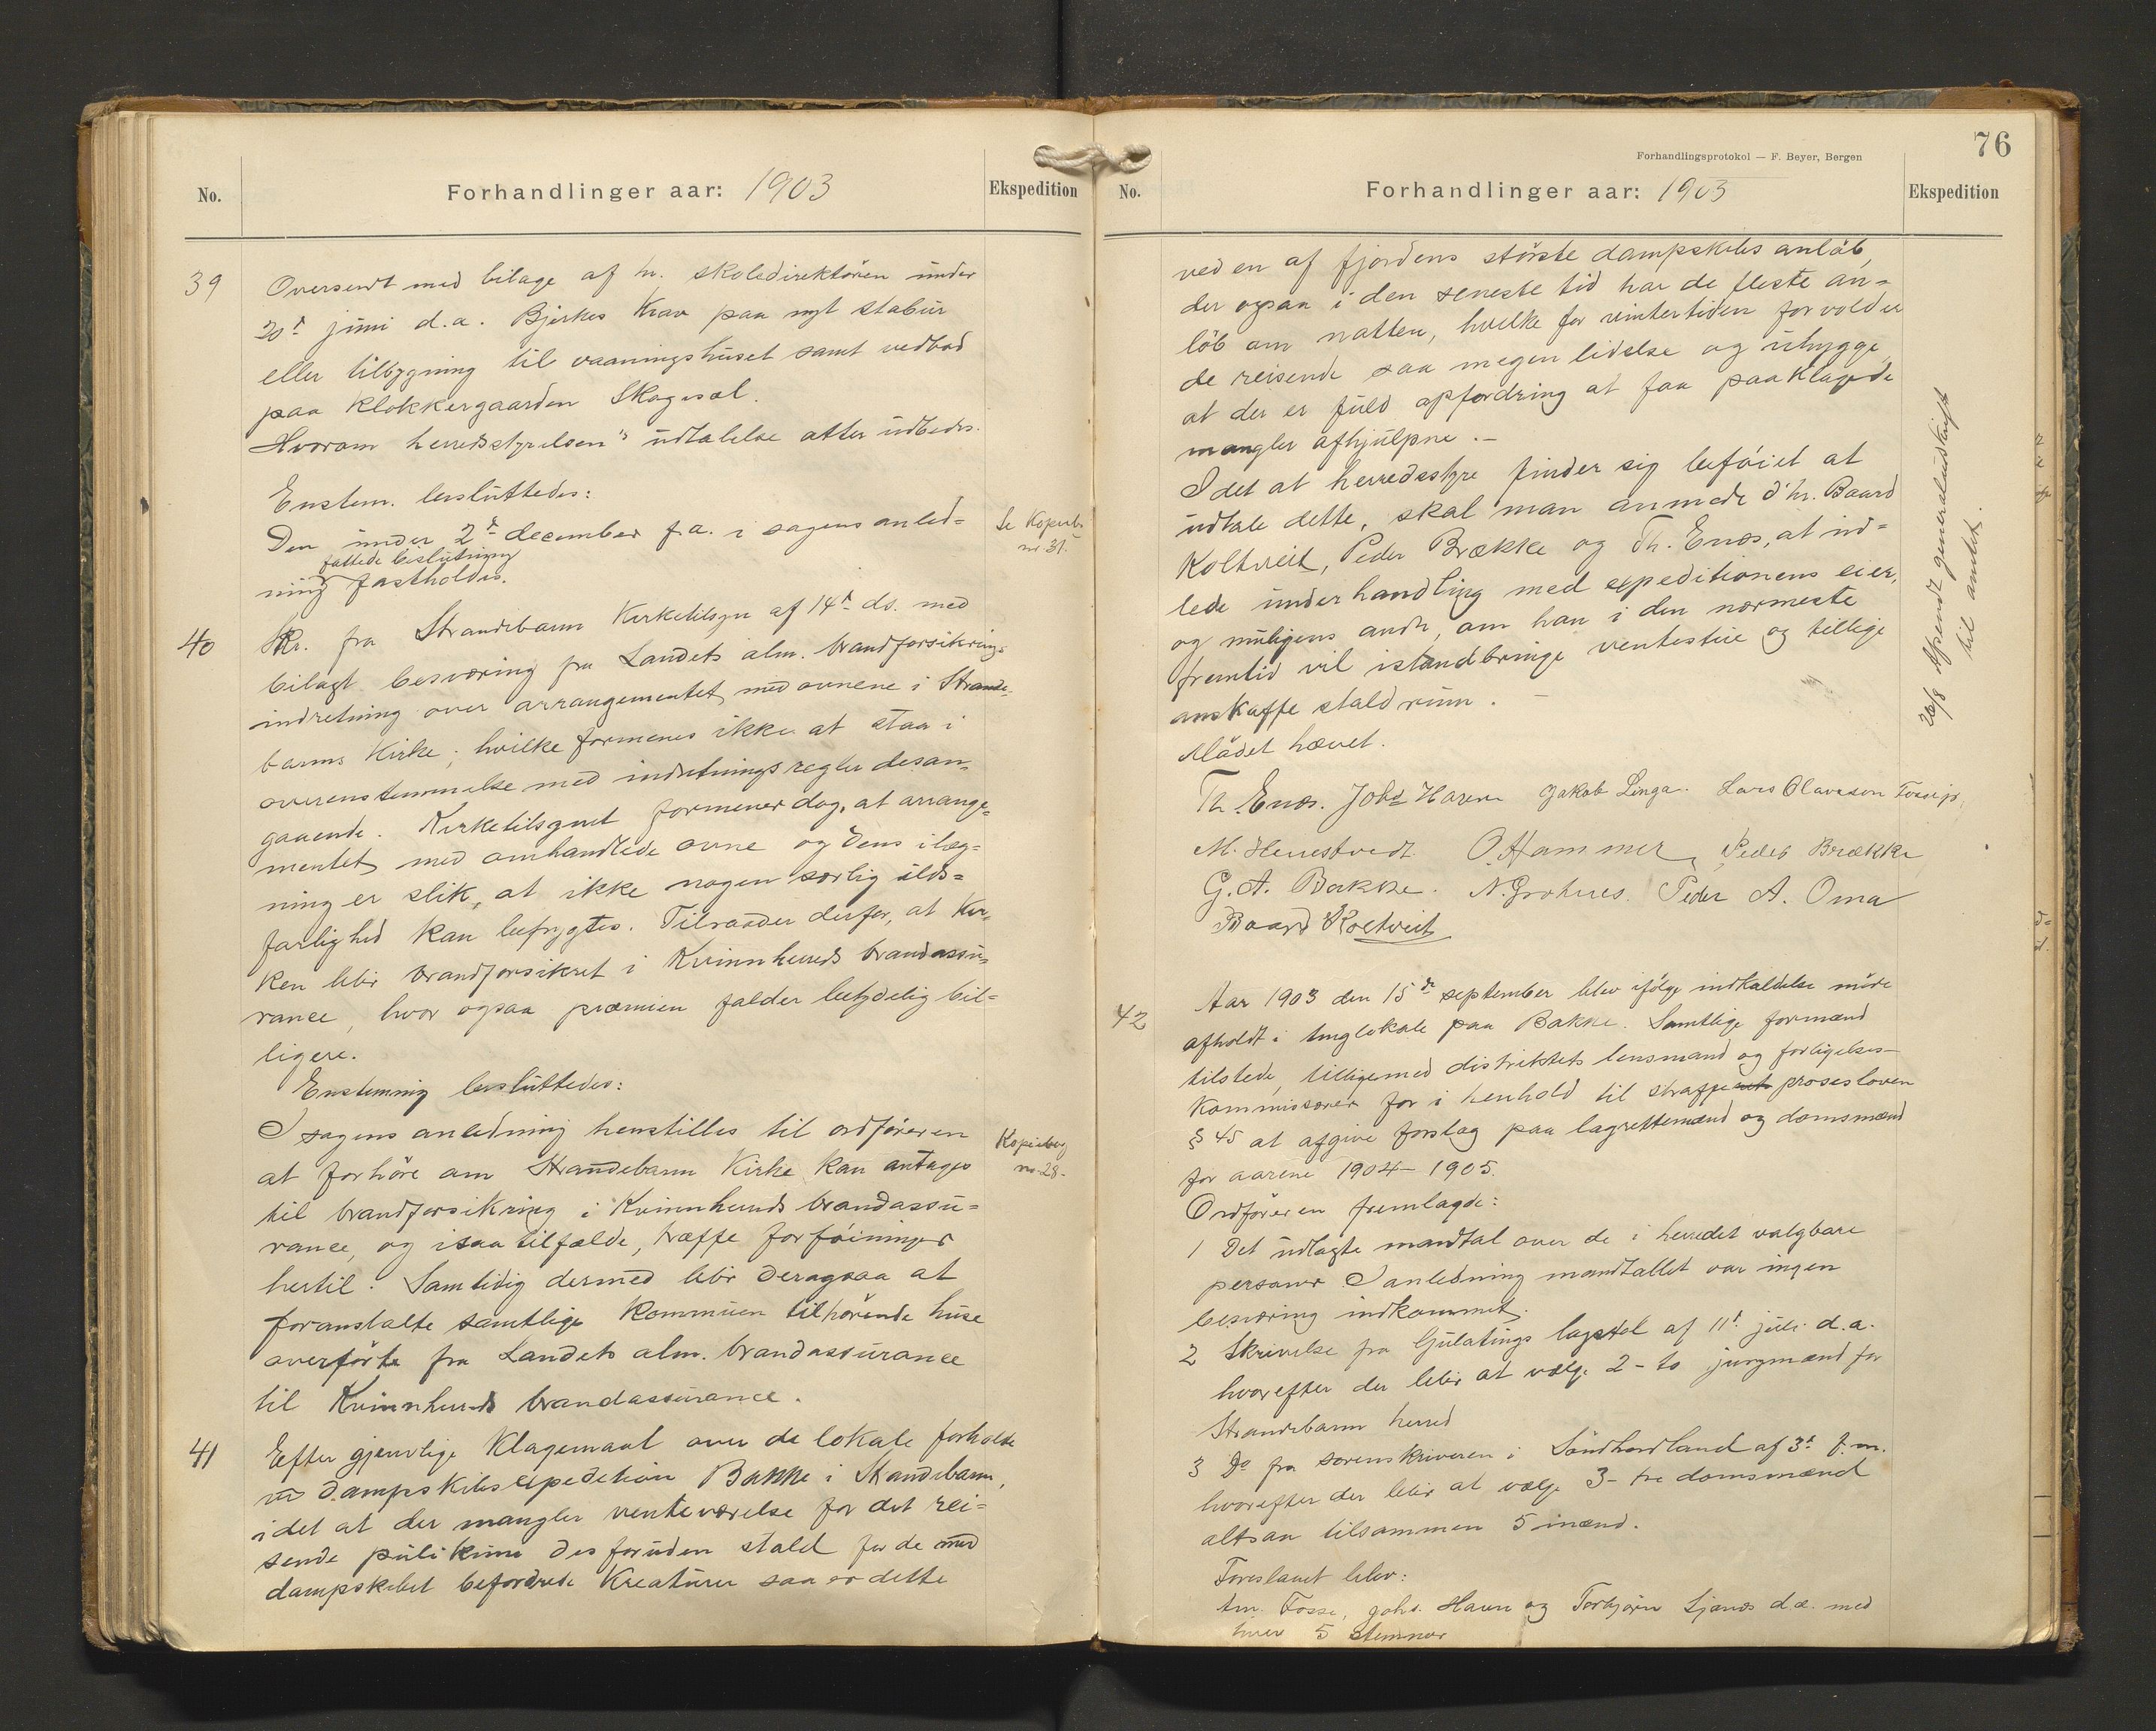 No.
Forhandlinger aar: 1903
Ekspedition
39
Oversendt med bilage af hr. skoledirektören under
20de juni d.a. Bjerkes Krav paa nyt stabur
eller tilbygning til vaaningshuset samt vedbod
paa Klokkergaarden Skogesæl.
Hvorom herredsstyrelsen's udtalelse atter udbedes.
Enstem. besluttedes:
Den under 2de december f.a. i sagens anled=
fattede beslutning
ning fastholdes.
Se Kopieb.
nr 31.
40
Skr. fra Strandebarm Kirketilsyn af 14de ds. med
bilagt besværing fra Landets alm. brandforsikrings
indretning over arrangementet med ovnene i Strande-
barms Kirke; hvilke formenes ikke at staa i
overensstemmelse med indretningsregler desan-
gaaende. Kirketilsynet formener dog, at arrange-
mentet med omhandlede ovne og dens ilæg=
ning er slik, at ikke nogen særlig ilds=
farlighed kan befrygtes. Tilraader derfor, at Kir-
ken blir brandforsikret i Kvinnherreds brandassu=
rance, hvor ogsaa præmien falder betydelig bil=
ligere.
Enstemmig besluttedes:
I sagens anledning henstilles til ordföreren
at forhöre om Strandebarm Kirke kan antages
til brandforsikring i Kvinnherreds brandassu=
rance, og isaatilfælde, træffe forföininger
hertil. Samtidig dermed blir derogsaa at
foranstalte samtlige Kommunen tilhörende huse
overförte fra Landets alm. brandassurance
til Kvinnherreds brandassurance.
Kopiebog
nr. 28-
41
Efter gjenvlige Klagemaal over de lokale forholde
ved Dampskibsexpedition Bakke i Strandebarm,
idet at der mangler venteværelse for det rei=
sende publikum desforuden stald for de med
dampskibet befordrede Kreaturer saa er dette
76
Forhandlingsprotokol — F. Beyer, Bergen
No.
Forhandlinger aar: 1903
Ekspedition
ved en af fjordens störste dampskibs anlöb,
der ogsaa i den seneste tid har de fleste an=
löb om natten, hvilke for vintertiden forvolder
de reisende saa megen lidelse og uhygge,
at der er fuld opfordring at faa paaklagede
mangler afhjulpne.-
Idet at herredsstyre finder sig beföiet at
udtale dette, skal man anmode d'hr. Baard
Koltveit, Peder Brække og Th. Enæs, at ind=
lede underhandling med expeditionens eier,
og muligens andr, om han i den nærmeste
fremtid vil istandbringe ventestue og tillige
anskaffe staldrum. -
26/8 Afsendt generaludskrift
til amtet.
Mödet hævet.
Th. Enæs. Johs Haven Jakob Linga. Lars Olavson Fosse jr.
M. Herrestvedt O. Hammer, Peder Brække
G. A. Bakke. N. Grohnes. Peder A. Oma
Baard Koltveit
42
Aar 1903 den 15de september blev ifölge indkaldelse möde
afholdt i tinglokale paa Bakke. Samtlige formænd
tilstede, tilligemed distriktets lensmand og forligelses-
Kommissærer for i henhold til straffe prosesloven
§ 45 at afgive forslag paa lagrettemænd og domsmænd
for aarene 1904- 1905.
Ordföreren fremlagde:
1 Det udlagte mandtal over de i herredet valgbare
personer I anledning mandtallet var ingen
besværing indkommet.
2 Skrivelse fra Gulatings lagstol af 11te juli d.a.
hvorefter der blir at vælge 2- to jurymænd for
Strandebarm herred
3 Do fra sorenskriveren i Söndhordland af 3de f.m.
hvorefter der blir at vælge 3- tre domsmænd
altsaa tilsammen 5 mænd.
Foreslaaet blev:
Am. Fosse, Johs. Haven og Torbjörn Ljones d.æ. med
hver 5 stemmer